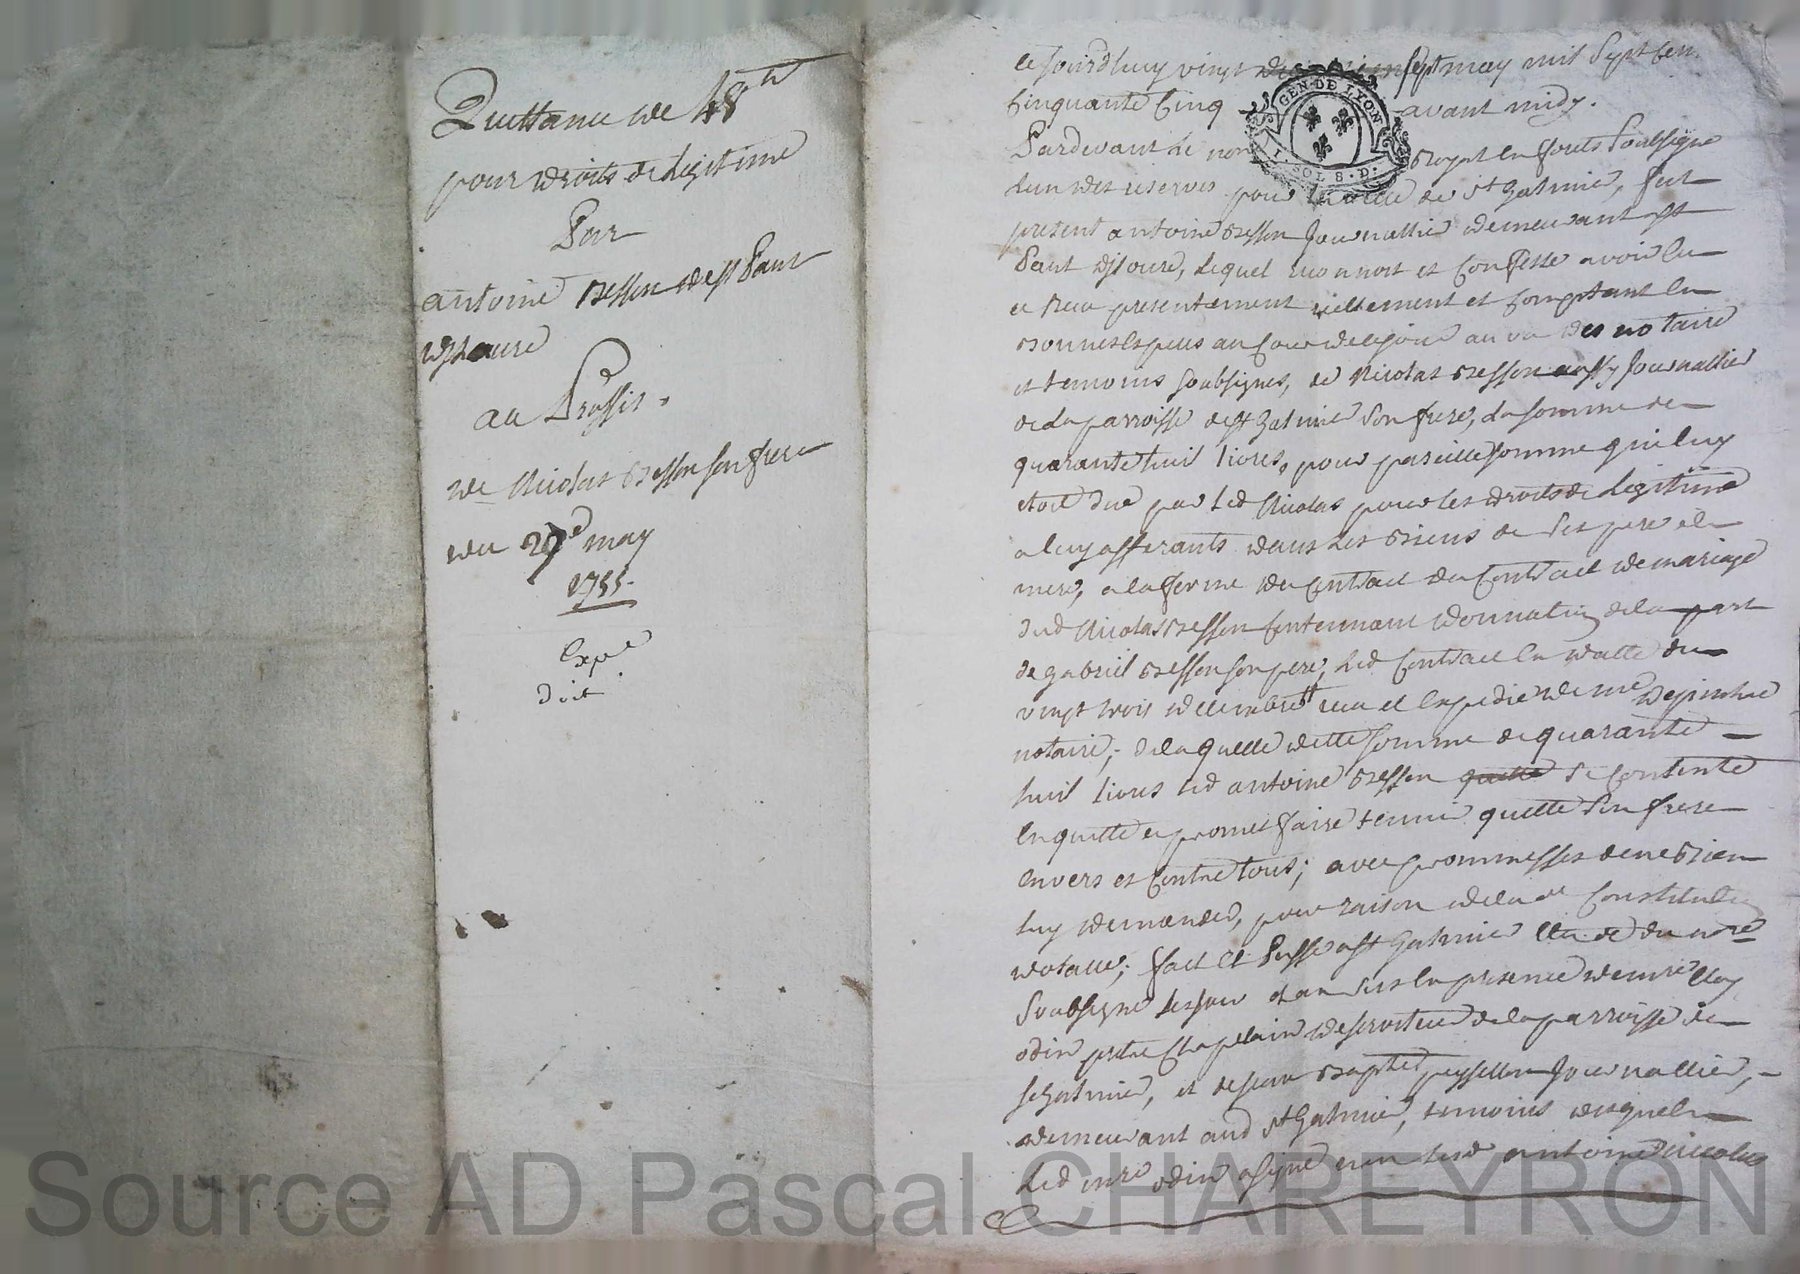 Quittance de 48ᵗᵗ
pour droits de Legitime
Par
antoine Besson de sᵗ Paul
au Proffit
de Nicolas Besson son frere
du 27ᵉ may
1755.
Expᵉ
doit
Cejourdhuy vingt sept may mil sept cen
Cinquante Cinq avant midy.
Pardevant Le no royal en forets soubsigne
Lun des reserves pour la ville de sᵗ Galmier, fut
present antoine Besson Journallier demeurant a sᵗ
Paul, Lequel reconnoit et Confesse avoir eu
et receu presentement reellement et comptant en
bonnes especes au cours de ce jour au vu des notaire
et temoins soubsignes, de Nicolas Besson aussy Journallier
de la parroisse de sᵗ Galmier son frere, la somme de
quarante huit livres, pour pareille somme qui luy
etoit due par Led Nicolas pour les droits de Legitime
a luy afferants dans les Biens de ses pere et
mere, a la forme du Contract du Contract de mariage
dud Nicolas Besson Contenant donnation de la part
de gabriel Besson son pere, Led Contract en datte du
vingt trois decembre receu et Expedié de mᵉ
notaire; de laquelle dette somme de quarante
huit livres Led antoine Besson quitte se Contente
En quitte et promet faire tenir quitte son frere
Envers et Contre tous; avec promesses de ne Rien
luy demander, pour raison de lad. Constitution
dotalle; fait et Passé a sᵗ Galmier Etude du noʳᵉ
soubsigné Les jour et an sus En presence de mʳᵉ
odin pretre Chapelain deserviteur de la parroisse de
sᵗ Galmier, et de jean Baptᵉ Journallier,
demeurant aud sᵗ Galmier, temoins desquels
Led mʳᵉ odin a signé non Lesd antoine Nicolas
GEN. DE LYON
SOL 8. D.
Source AD Pascal CHAREYRON